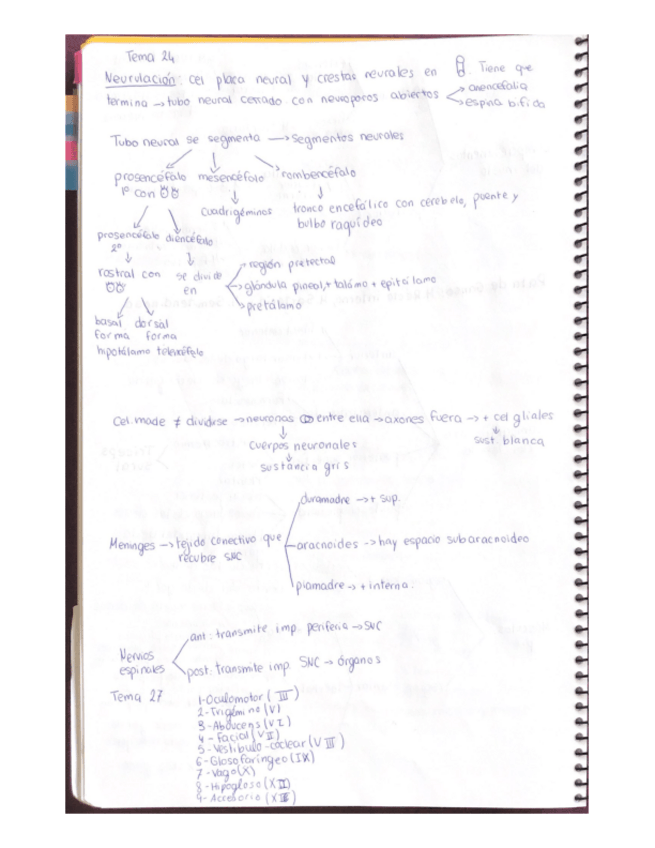 Tema 24
Neurulación: cel placa neural y crestas neurales en . Tiene que
termina → tubo neural cerrado con neuroporos abiertos → anencefalia
→ espina bífida
Tubo neural se segmenta → Segmentos neurales
prosencéfalo mesencéfalo rombencéfalo
1º con
cuadrigéminos
tronco encefálico con cerebelo, puente y
bulbo raquídeo
prosencéfalo diencéfalo
2º
rostral con se divide
en
→ región pretectal
→ glándula pineal, + talámo + epitálamo
→ pretálamo
basal dorsal
forma forma
hipotálamo telencéfalo
Cel. made ≠ dividirse → neuronas entre ella → axones fuera → + cel gliales
cuerpos neuronales
sust. blanca
sustancia gris
duramadre → + sup.
Meninges → tejido conectivo que
recubre SNC
aracnoides → hay espacio subaracnoideo
piamadre → + interna.
Nervios
espinales
ant: transmite imp. periferia → SNC
post: transmite imp. SNC → órganos
Tema 27
1-Oculomotor (III)
2-Trigémino (V)
3-Abducens (VI)
4-Facial (VII)
5-Vestíbulo-coclear (VIII)
6-Glosofaríngeo (IX)
7-Vago (X)
8-Hipogloso (XII)
9-Accesorio